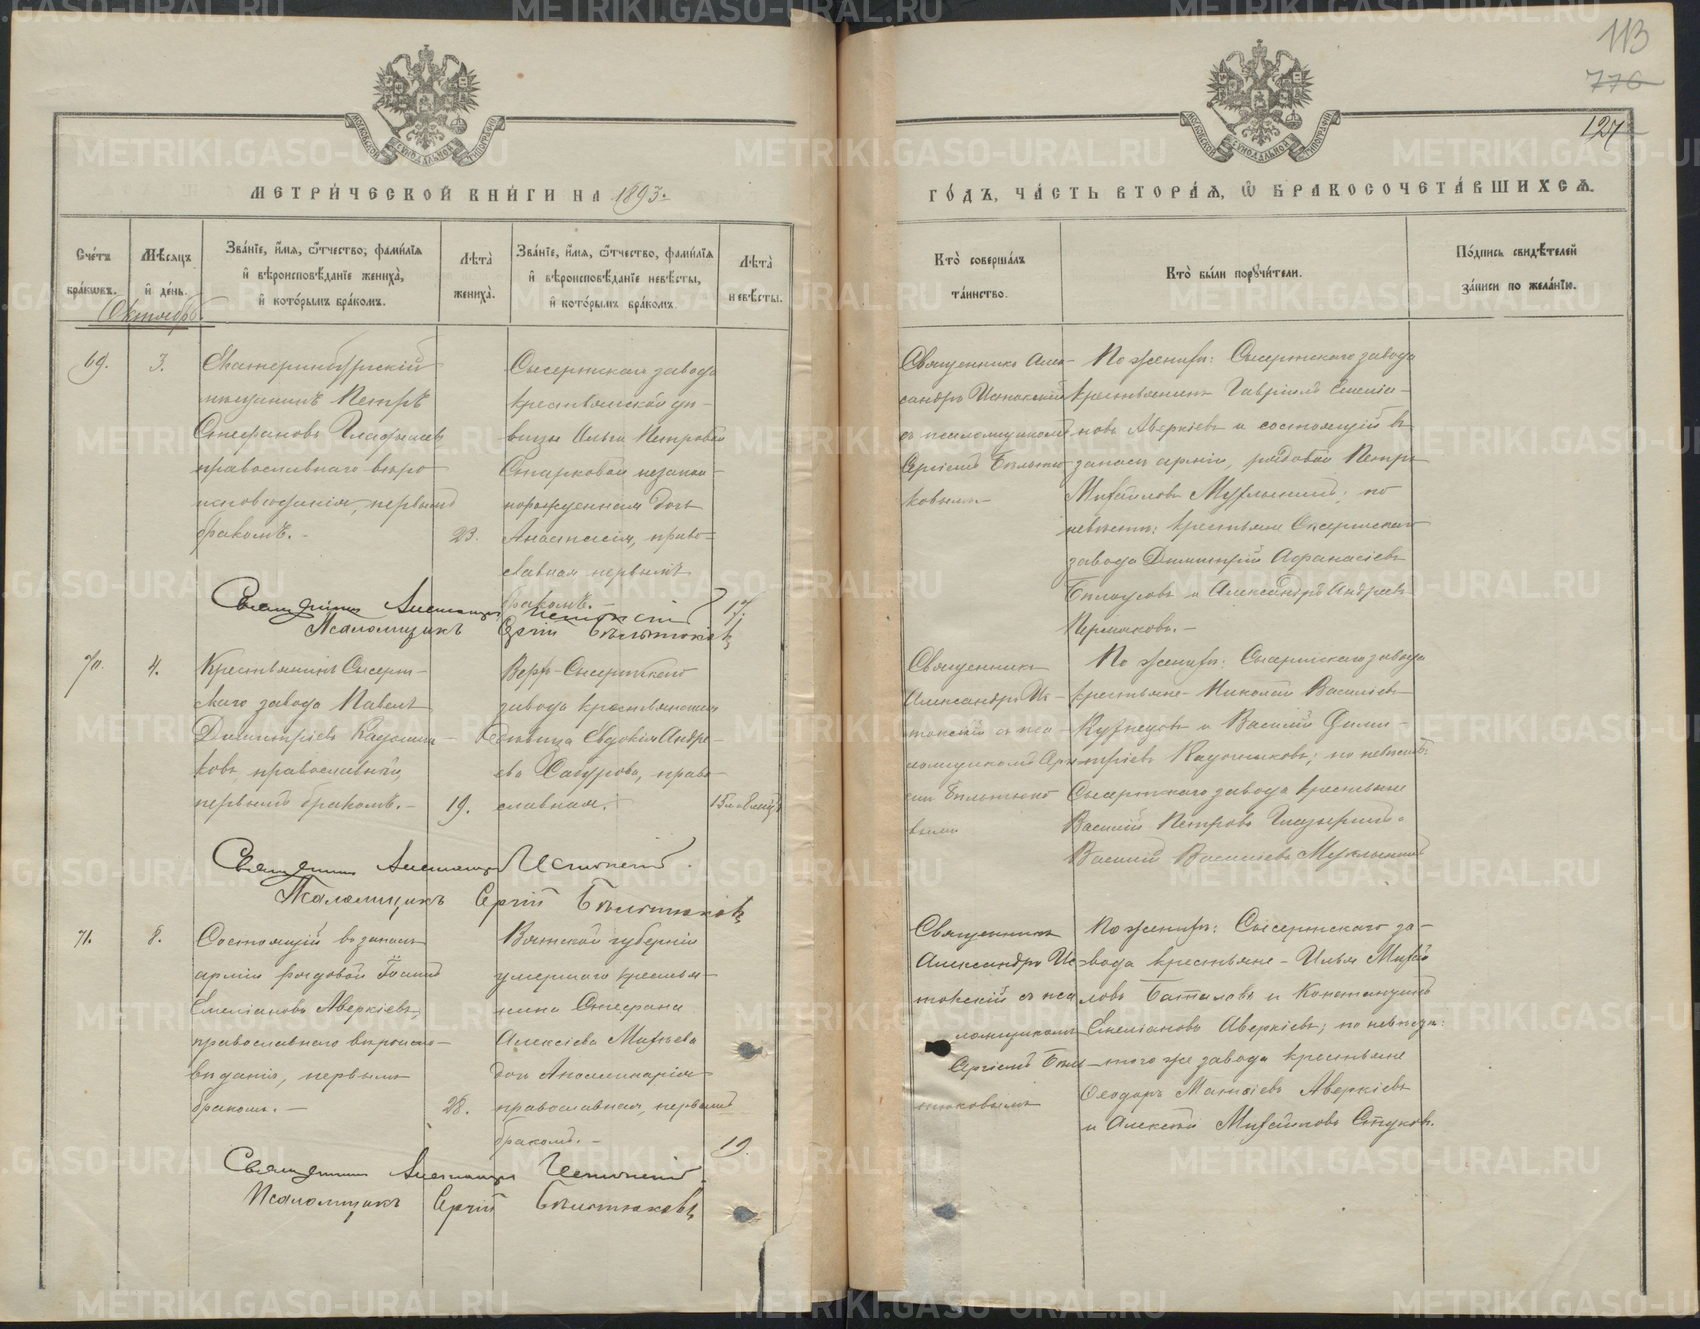 113
776
127
МЕТРИ́ЧЕСКОЙ КНИ́ГИ НА 1893.
ГО́ДЪ, ЧА́СТЬ ВТОРА́Я, Ѡ҆ БРАКОСОЧЕТА́ВШИХСЯ.
Сче́тъ бра́кωвъ.
Мѣ́сяцъ и҆ де́нь.
Зва́нїе, и҆́мя, ѻ҆́тчество, фами́лїя
и҆ вѣроисповѣ́данїе жениха̀,
и҆ кото́рымъ бра́комъ.
Лѣта̀ жениха̀.
Зва́нїе, и҆́мя, ѻ҆́тчество, фами́лїя
и҆ вѣроисповѣ́данїе невѣ́сты,
и҆ кото́рымъ бра́комъ.
Лѣта̀ невѣ́сты.
Кто̀ соверша́лъ та́инство.
Кто̀ бы́ли поручи́тели.
По́дпись свидѣ́телей
за́писи по жела́нїю.
Октябрь
69.
3.
Екатеринбургскій
мѣщанинъ Петръ
Стефановъ
православнаго вѣро
исповѣданія, первымъ
бракомъ.-
23.
Сысертскаго завода
крестьянской дѣ-
вицы Ольги Петровой
Старковой незакон-
норожденная дочь
Анастасія, право-
славная первымъ
бракомъ.-
17.
Священникъ Алек-
сандръ Истокскій
съ псаломщикомъ
Сергіемъ Бѣльтю-
ковымъ
По женихѣ: Сысертскаго завода
крестьянинъ Гавріилъ Емелiа-
новъ Аверкіевъ и состоящій въ
запасѣ арміи, рядовой Петръ
Михайловъ; по
невѣстѣ: крестьяне Сысертскаго
завода Димитрій Афанасіевъ
Бѣлоусовъ и Александръ Андреевъ
Пермяковъ.-
Священникъ Александръ Истокскій
Псаломщикъ Сергій Бѣльтюковъ
70.
4.
Крестьянинъ Сысерт-
скаго завода Павелъ
Димитріевъ Кадочни-
ковъ, православный,
первымъ бракомъ.-
19.
Верхъ-Сысертскаго
завода крестьянская
дѣвица Евдокія Андре-
ева Сабурова, право-
славная.
Священникъ
Александръ Ис-
токскій съ пса-
ломщикомъ Сер-
гіемъ Бѣльтюко-
вымъ
По женихѣ: Сысертскаго завода
крестьяне - Николай Василіевъ
Кузнецовъ и Василій Дими-
тріевъ Кадочниковъ; по невѣстѣ:
Сысертскаго завода крестьяне
Василій Петровъ
Василій Василіевъ
Священникъ Александръ Истокскій.
Псаломщикъ Сергій Бѣльтюковъ
71.
8.
Состоящій въ запасѣ
арміи рядовой
Емеліановъ Аверкіевъ,
православнаго вѣроиспо-
вѣданія, первымъ
бракомъ.-
28.
Вятской губерніи
умершаго крестья-
нина Стефана
Алексіева Михѣева
дочь Аполлинарія
православная, первымъ
бракомъ.-
19.
Священникъ
Александръ Ис-
токскій съ пса
ломщикомъ
Сергіемъ Бѣль-
тюковымъ
По женихѣ: Сысертскаго за-
вода крестьяне - Илья Михай
ловъ Баталовъ и Константинъ
Емеліановъ Аверкіевъ; по невѣстѣ:
того же завода крестьяне
Ѳеодоръ Матѳіевъ Аверкіевъ
и Алексій Михайловъ Стуковъ.
Священникъ Александръ Истокскій.
Псаломщикъ Сергій Бѣльтюковъ
METRIKI.GASO-URAL.RU